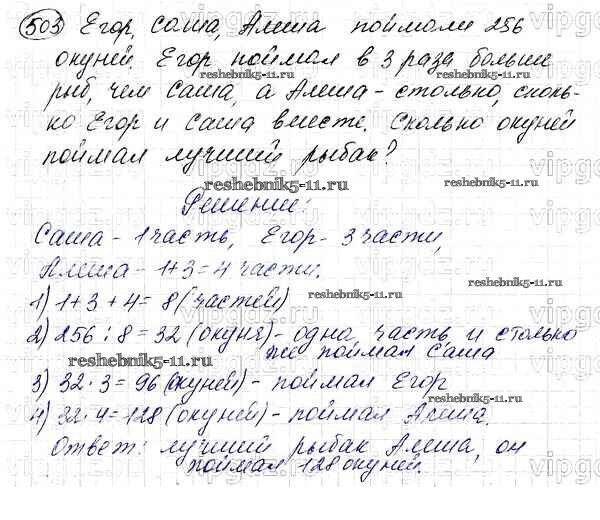 503 Егор, Саша, Алеша поймали 256
окуней. Егор поймал в 3 раза больше
рыб, чем Саша, а Алеша - столько, сколь-
ко Егор и Саша вместе. Сколько окуней
поймал лучший рыбак?
Решение:
Саша - 1 часть, Егор - 3 части,
Алеша - 1+3=4 части.
1) 1+3+4= 8 (частей)
2) 256 : 8 = 32 (окуня) - одна часть и столько
же поймал Саша
3) 32 · 3 = 96 (окуней) - поймал Егор
4) 32 · 4 = 128 (окуней) - поймал Алеша.
Ответ: лучший рыбак Алеша, он
поймал 128 окуней.
reshebnik5-11.ru
reshebnik5-11.ru
reshebnik5-11.ru
reshebnik5-11.ru
reshebnik5-11.ru
reshebnik5-11.ru
reshebnik5-11.ru
vipgdz.ru